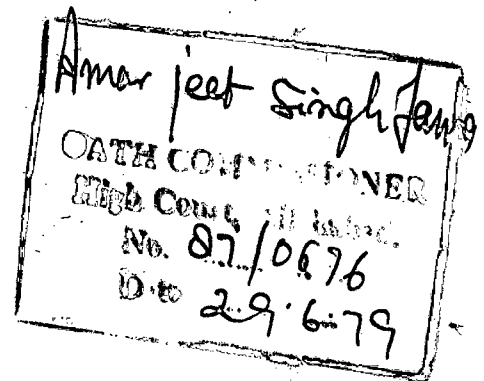 Amar jeet Singh
OATH COMMISSIONER
High Court, Allahabad.
No. 87/0676
Date 29.6.79